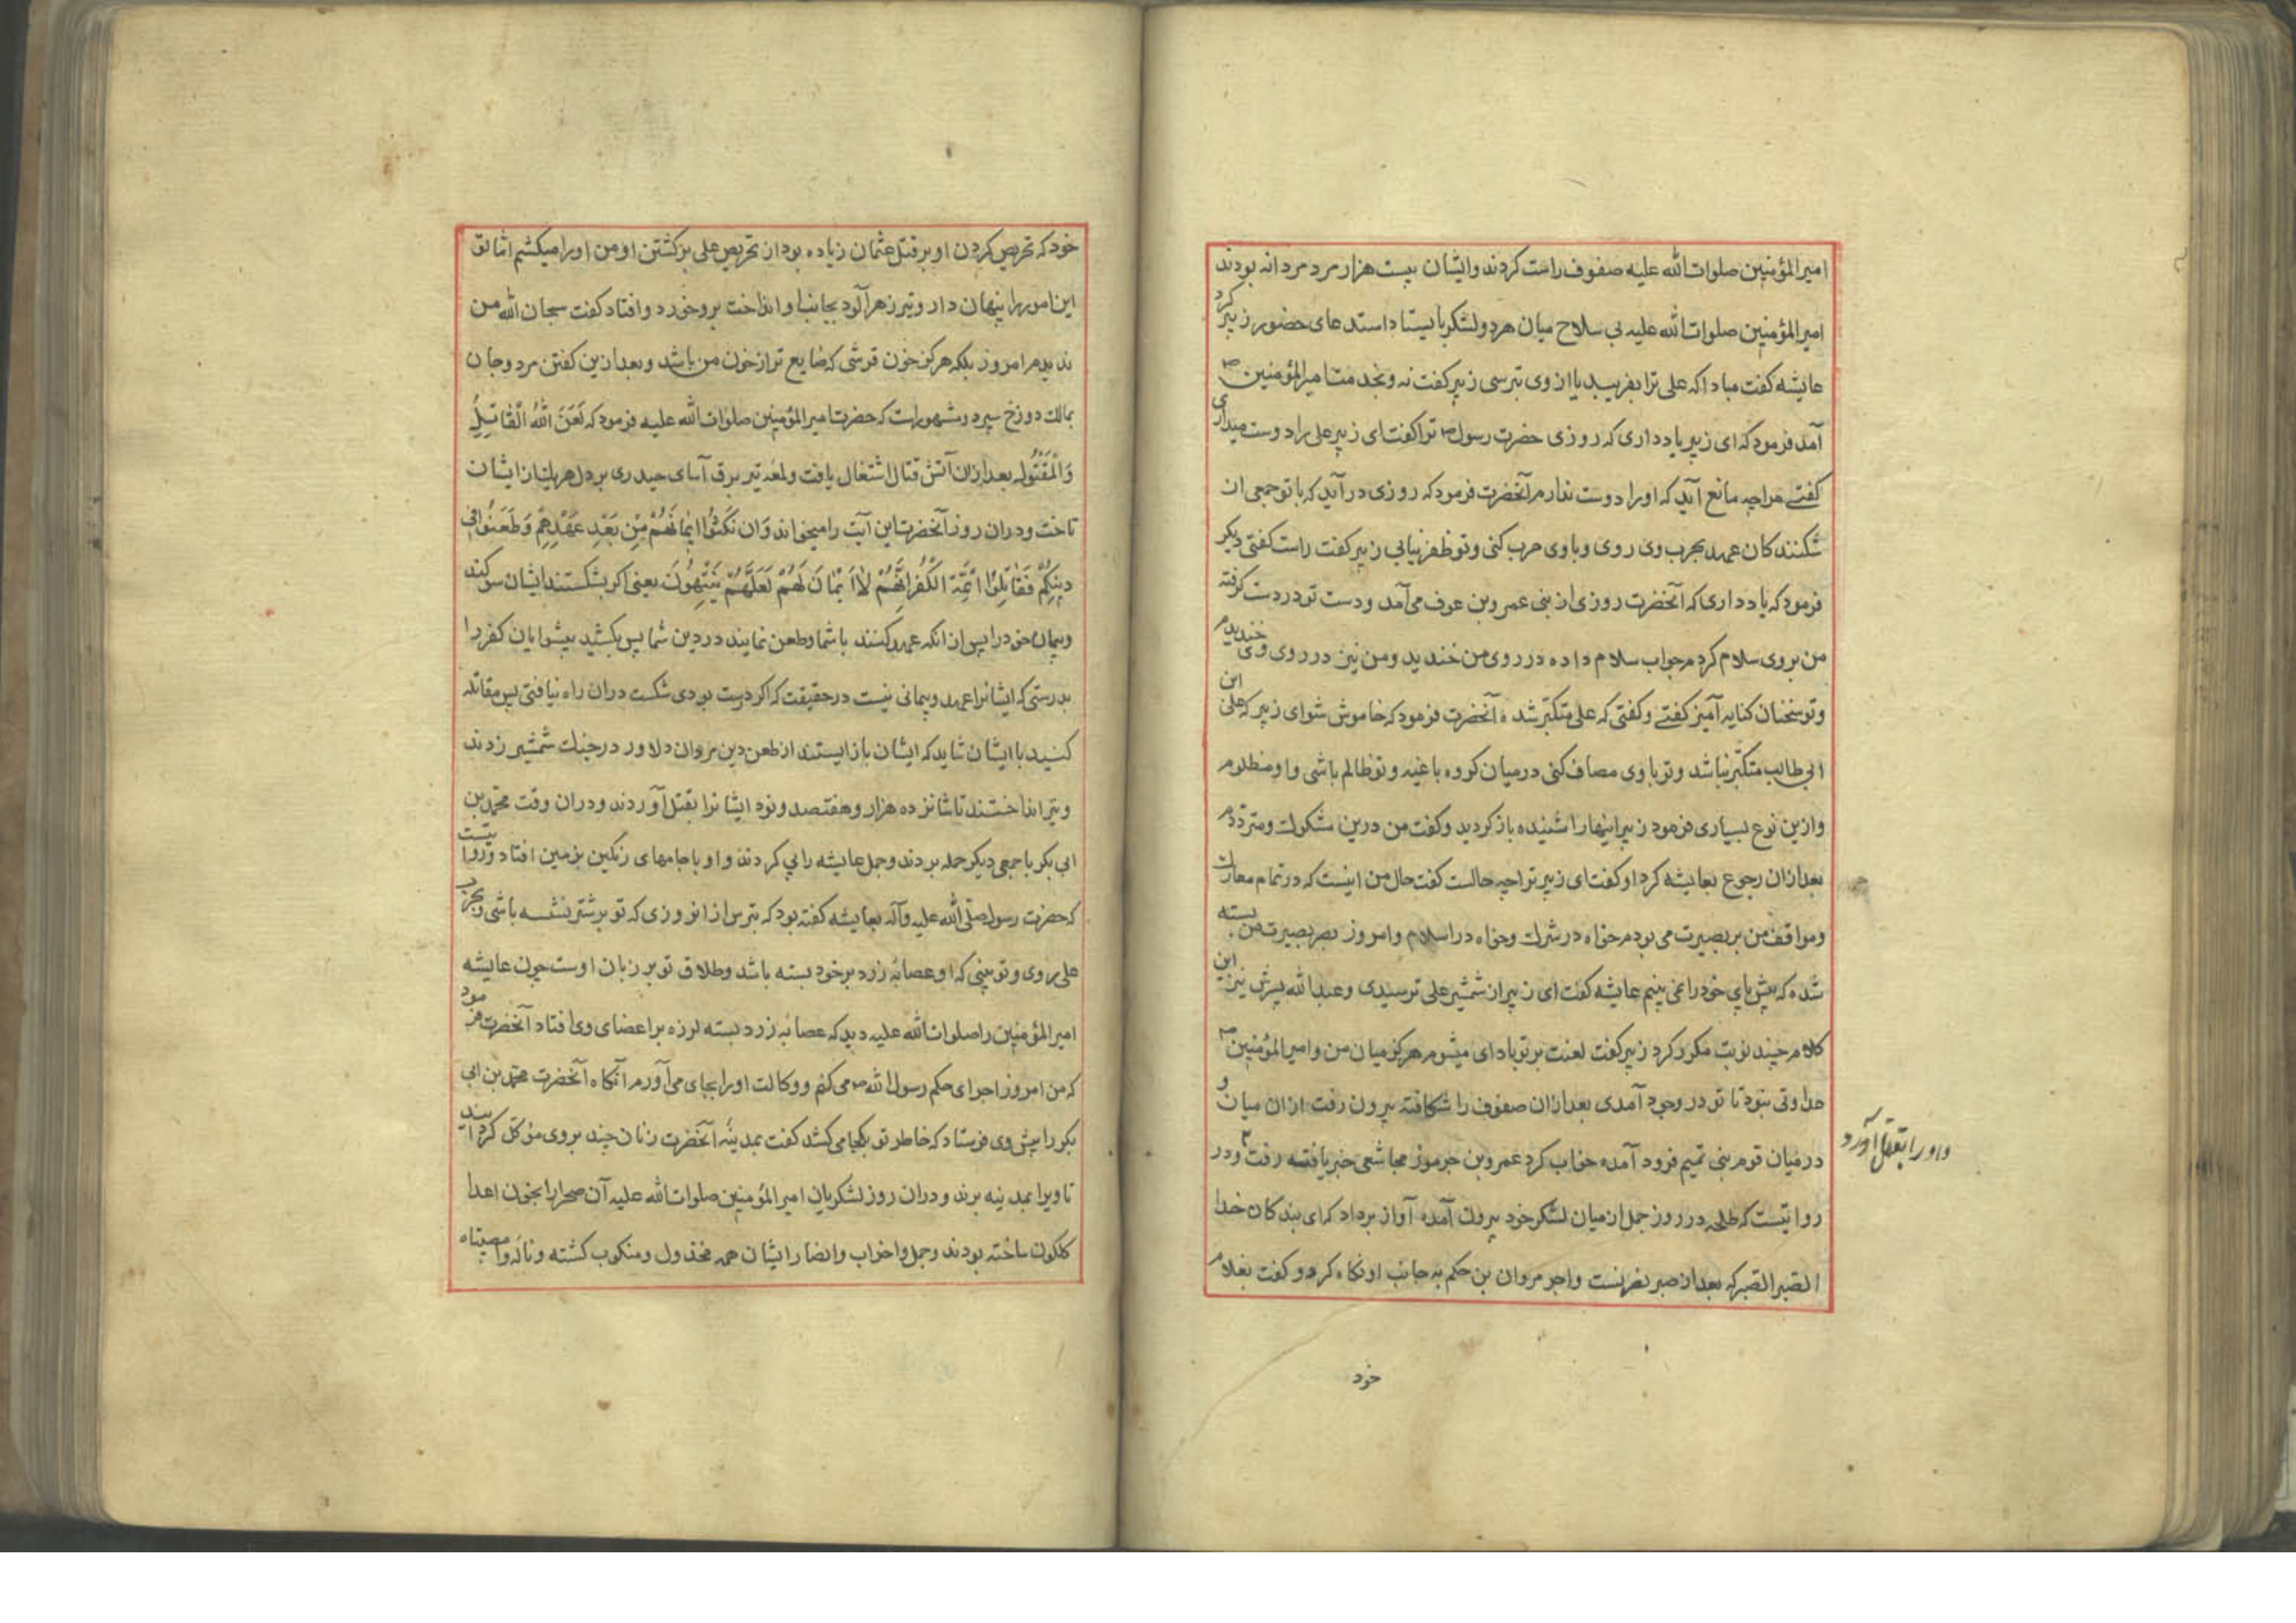 امیر المؤمنین صلوات الله علیه صفوف راست کردند و ایشان بیست هزار مرد مردانه بودند
امیر المؤمنین صلوات الله علیه بی سلاح میان هر دو لشکر بایستاد استدعای حضور زبیر کرد
عایشه کفت مبادا که علی ترا بفریبد یا از وی بترسی زبیر کفت نه و بخدمت امیر المؤمنین ص
آمد فرمود که ای زبیر یاد داری که روزی حضرت رسول ص ترا کفت ای زبیر علی را دوست میداری
کفتے مرا چه مانع آید که او را دوست ندارم آنحضرت فرمود که روزی در آید که با تو جمعی ان
شکنندکان عهد بحرب وی روی و با وی حرب کنی و تو ظفر نیابی زبیر کفت راست کفتی دیکر
فرمود که یاد داری که آنحضرت روزی از بنی عمرو بن عوف می آمد و دست تو در دست کرفته
من بروی سلام کردم جواب سلام داده در روی من خندید و من نیز در روی وی خندیدم
و تو سخنان کنایه آمیز کفتے و کفتی که علی متکبّر شده آنحضرت فرمود که خاموش شو ای زبیر که علی ابن
ابی طالب متکبّر نباشد و تو با وی مصاف کنی در میان کروه باغیه و تو ظالم باشی و او مظلوم
و ازین نوع بسیاری فرمود زبیر اینها را شنیده باز کردید و کفت من درین مشکوک و متردّدم
بعد ازان رجوع بعایشه کرد او کفت ای زبیر ترا چه حالست کفت حال من اینست که در تمام معارک
و مواقف من بر بصیرت می بودم خواه در شرک و خواه در اسلام و امروز بصر بصیرت من بسته
شده که پیش پای خود را نمی بینم عایشه کفت ای زبیر از شمشیر علی ترسیدی و عبد الله پسرش نیز این
کلام چند نوبت مکرر کرد زبیر کفت لعنت بر تو باد ای میشوم هرکز میان من و امیر المؤمنین ص
عداوتی نبود تا تو در وجود آمدی بعد ازان صفوف را شکافته بیرون رفت ازان میان و
در میان قوم بنی تمیم فرود آمده خواب کرد عمرو بن جرموز مجاشعی خبر یافته رفت و در
و او را بقتل آورد
روایتست که طلحه در روز جمل از میان لشکر خود بیرون آمده آواز برداد که ای بندکان خدا
الصّبر الصّبر که بعد از صبر نصرتست و اجر مروان بن حکم به جانب او نکاه کرد و کفت بغلام
خود
خود که تحریص کردن او بر قتل عثمان زیاده بود از تحریص علی بر کشتن او من او را میکشم اما تو
این امور را پنهان دار و تیر زهرآلود بجانب او انداخت بر و خورد و افتاد کفت سبحان الله من
ندیدم امروز بلکه هرکز خون قرشی که ضایع تر از خون من باشد و بعد ازین کفتن مرد و جان
بمالک دوزخ سپرد و مشهور است که حضرت امیر المؤمنین صلوات الله علیه فرمود که لَعَنَ اللهُ الْقَاتِلُ
وَالْمَقْتُول بعد ازان آتش قتال اشتعال یافت و لمعه تیر برق آسای حیدری بر دل هر یک از ایشان
تاخت و دران روز آنحضرت این آیت را میخواند وَاِن نَكَثُوا اَيْمَانَهُمْ مِّن بَعْدِ عَهْدِهِمْ وَطَعَنُوا فِي
دِينِكُمْ فَقَاتِلُوا اَئِمَّةَ الْكُفْرِ اِنَّهُمْ لَا اَيْمَانَ لَهُمْ لَعَلَّهُمْ يَنْتَهُونَ یعنی اکر بشکستند ایشان سوکند
و پیمان خود را پس از انکه عهد کنند با شما و طعن نمایند در دین شما پس بکشید پیشوایان کفر را
بدرستی که ایشانرا عهد و پیمانی نیست در حقیقت که اکر درست بودی شکست دران راه نیافتی پس مقاتله
کنید با ایشان شاید که ایشان باز ایستند از طعن دین مروان دلاور در جنک شمشیر زدند
و تیر انداختند تا شانزده هزار و هفتصد و نود ایشانرا بقتل آوردند و دران وقت محمّد بن
ابی بکر با جمعی دیکر حمله بردند و جمل عایشه را پی کردند و او با جامهای رنکین بزمین افتاد و روایتست
که حضرت رسول صلّی الله علیه و آله بعایشه کفته بود که بترس از انروزی که تو بر شتر نشسته باشی و بحرب
علی روی و تو بینی که او عصابه زرد بر خود بسته باشد و طلاق تو بر زبان اوست چون عایشه
امیر المؤمنین را صلوات الله علیه دید که عصابه زرد بسته لرزه بر اعضای وی افتاد آنحضرت فرمود
که من امروز اجرای حکم رسول الله ص می کنم و وکالت او را بجای می آورم آنکاه آنحضرت محمّد بن ابی
بکر را پیش وی فرستاد که خاطر تو بکجا می کشد کفت بمدینه آنحضرت زنان چند بروی موکّل کردانید
تا ویرا بمدینه برند و دران روز لشکریان امیر المؤمنین صلوات الله علیه آن صحرا را بخون اعدا
کلکون ساخته بودند و جمل و احزاب و انصار ایشان همه مخذول و منکوب کشته و نائره